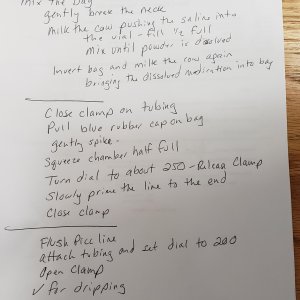 Mix the bag
gently break the neck
Milk the cow pushing the saline into
the vial - fill 1/2 full
Mix until powder is dissolved
Invert bag and milk the cow again
bringing the dissolved medication into bag
Close clamp on tubing
Pull blue rubber cap on bag
gently spike.
Squeeze chamber half full
Turn dial to about 250 - Release Clamp
Slowly prime the line to the end
Close clamp
Flush Picc line
attach tubing and set dial to 200
Open Clamp
✓ for dripping